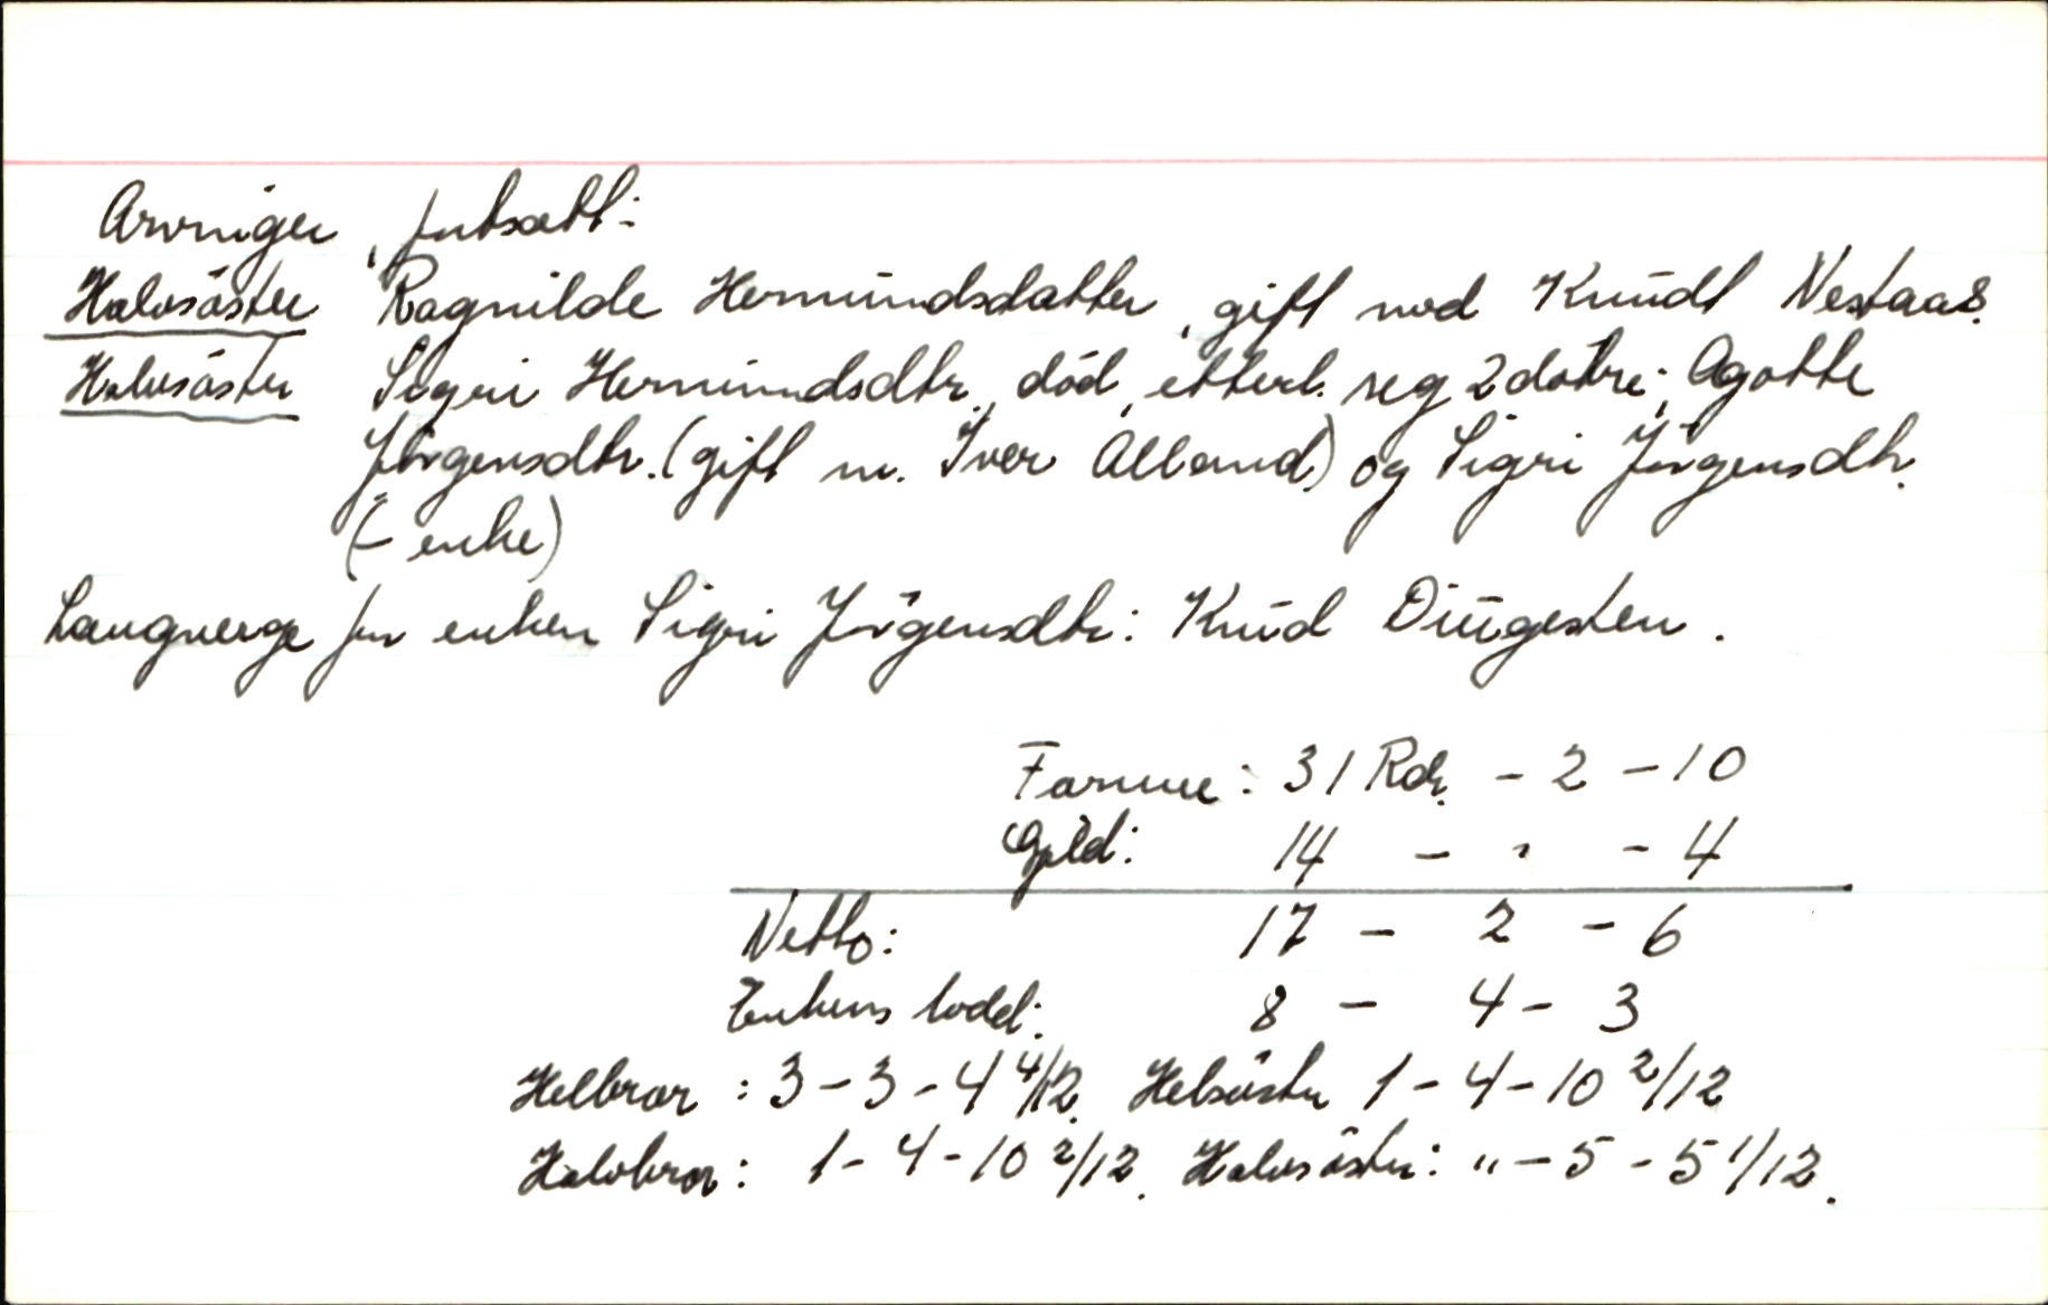 Arvinger, fortsatt:
Halvsöster Ragnilde Hermundsdatter, gift med Knudt Nestaas.
Halvsöster Sigri Hermundsdtr., död, etterl. seg 2 dötre: Agotte
Jörgensdtr. (gift m. Iver Alland) og Sigri Jörgensdtr.
(- enke)
Laugverge for enken Sigri Jörgensdtr: Knud Diügesten.
Formue: 31 Rdr. - 2 - 10
Gjeld: 14 - " - 4
Netto: 17 - 2 - 6
Enkens lodd: 8 - 4 - 3
Helbror: 3 - 3 - 4 4/12. Helsöster 1 - 4 - 10 2/12
Halvbror: 1 - 4 - 10 2/12. Halvsöster: " - 5 - 5 1/12.